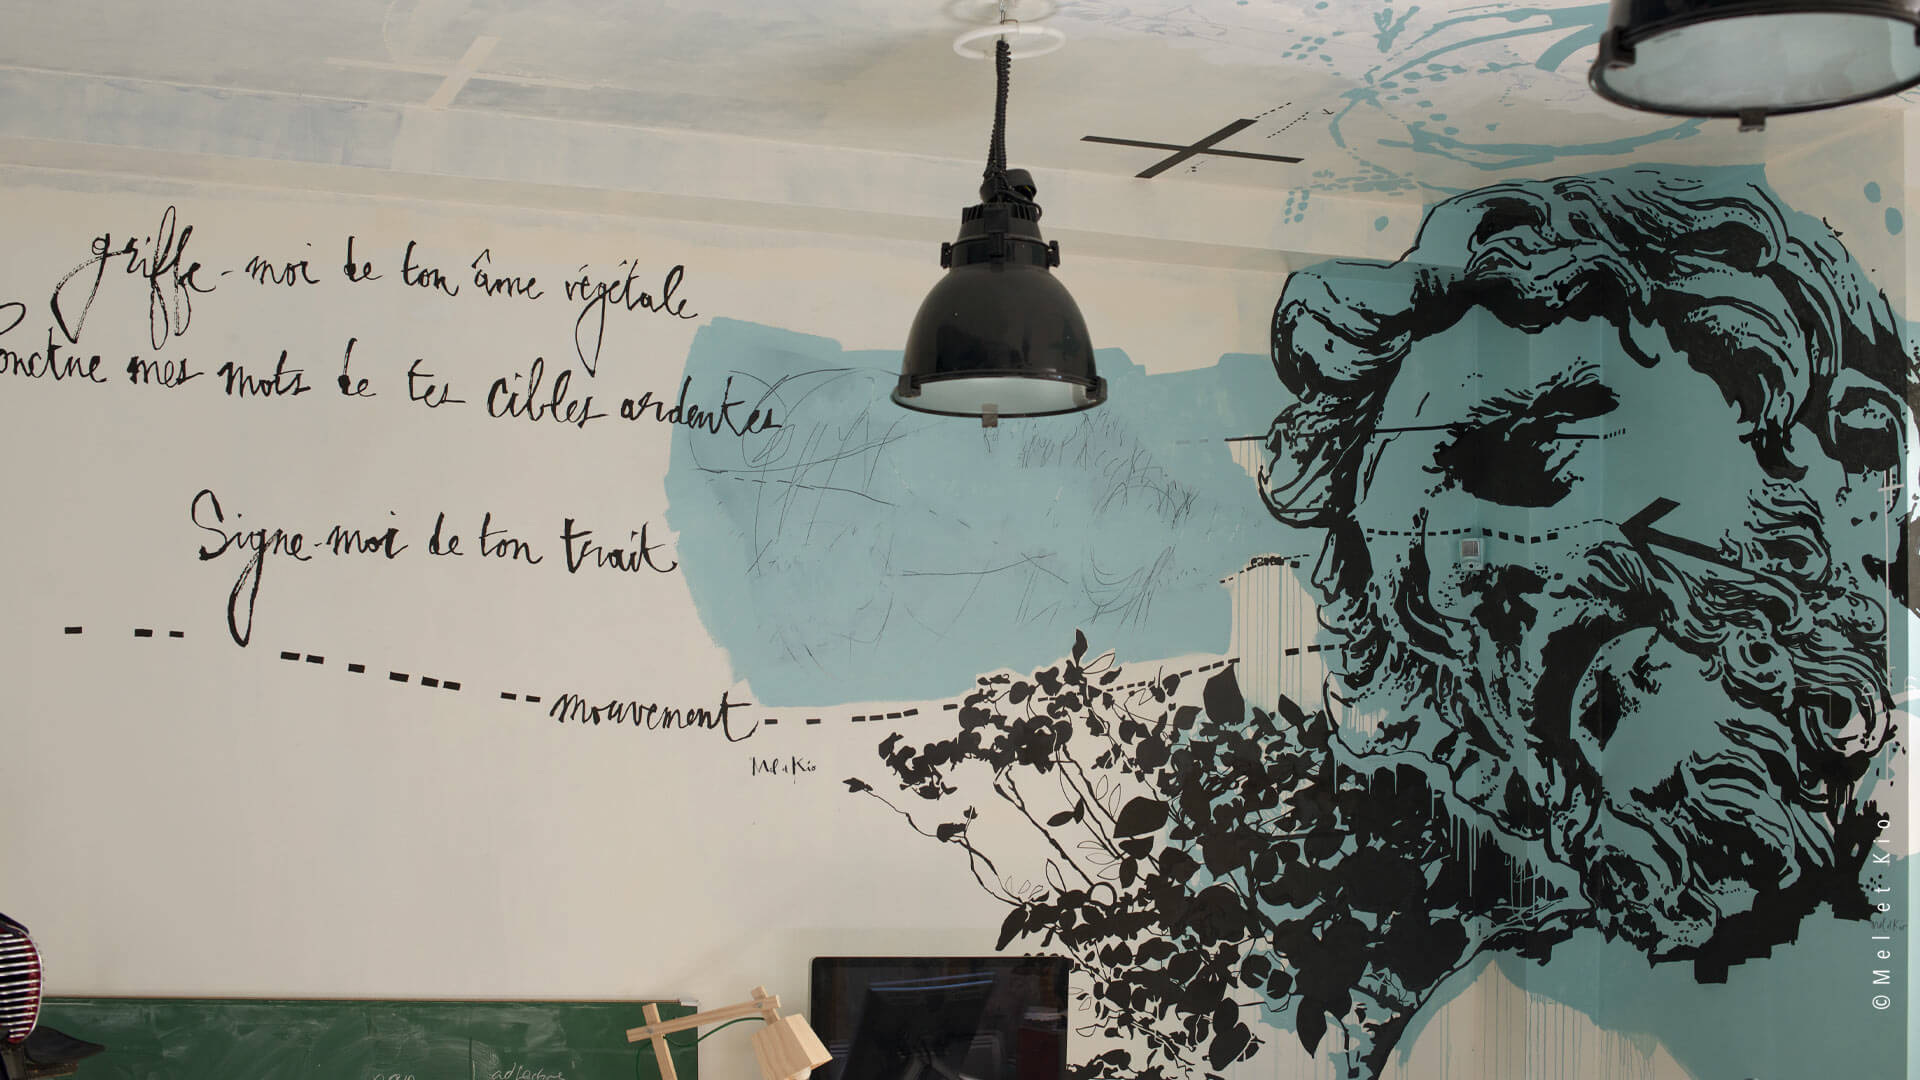 griffe-moi de ton âme végétale
Ponctue mes mots de tes cibles ardentes
Signe-moi de ton trait
mouvement
Mel et Kio
© Mel et Kio